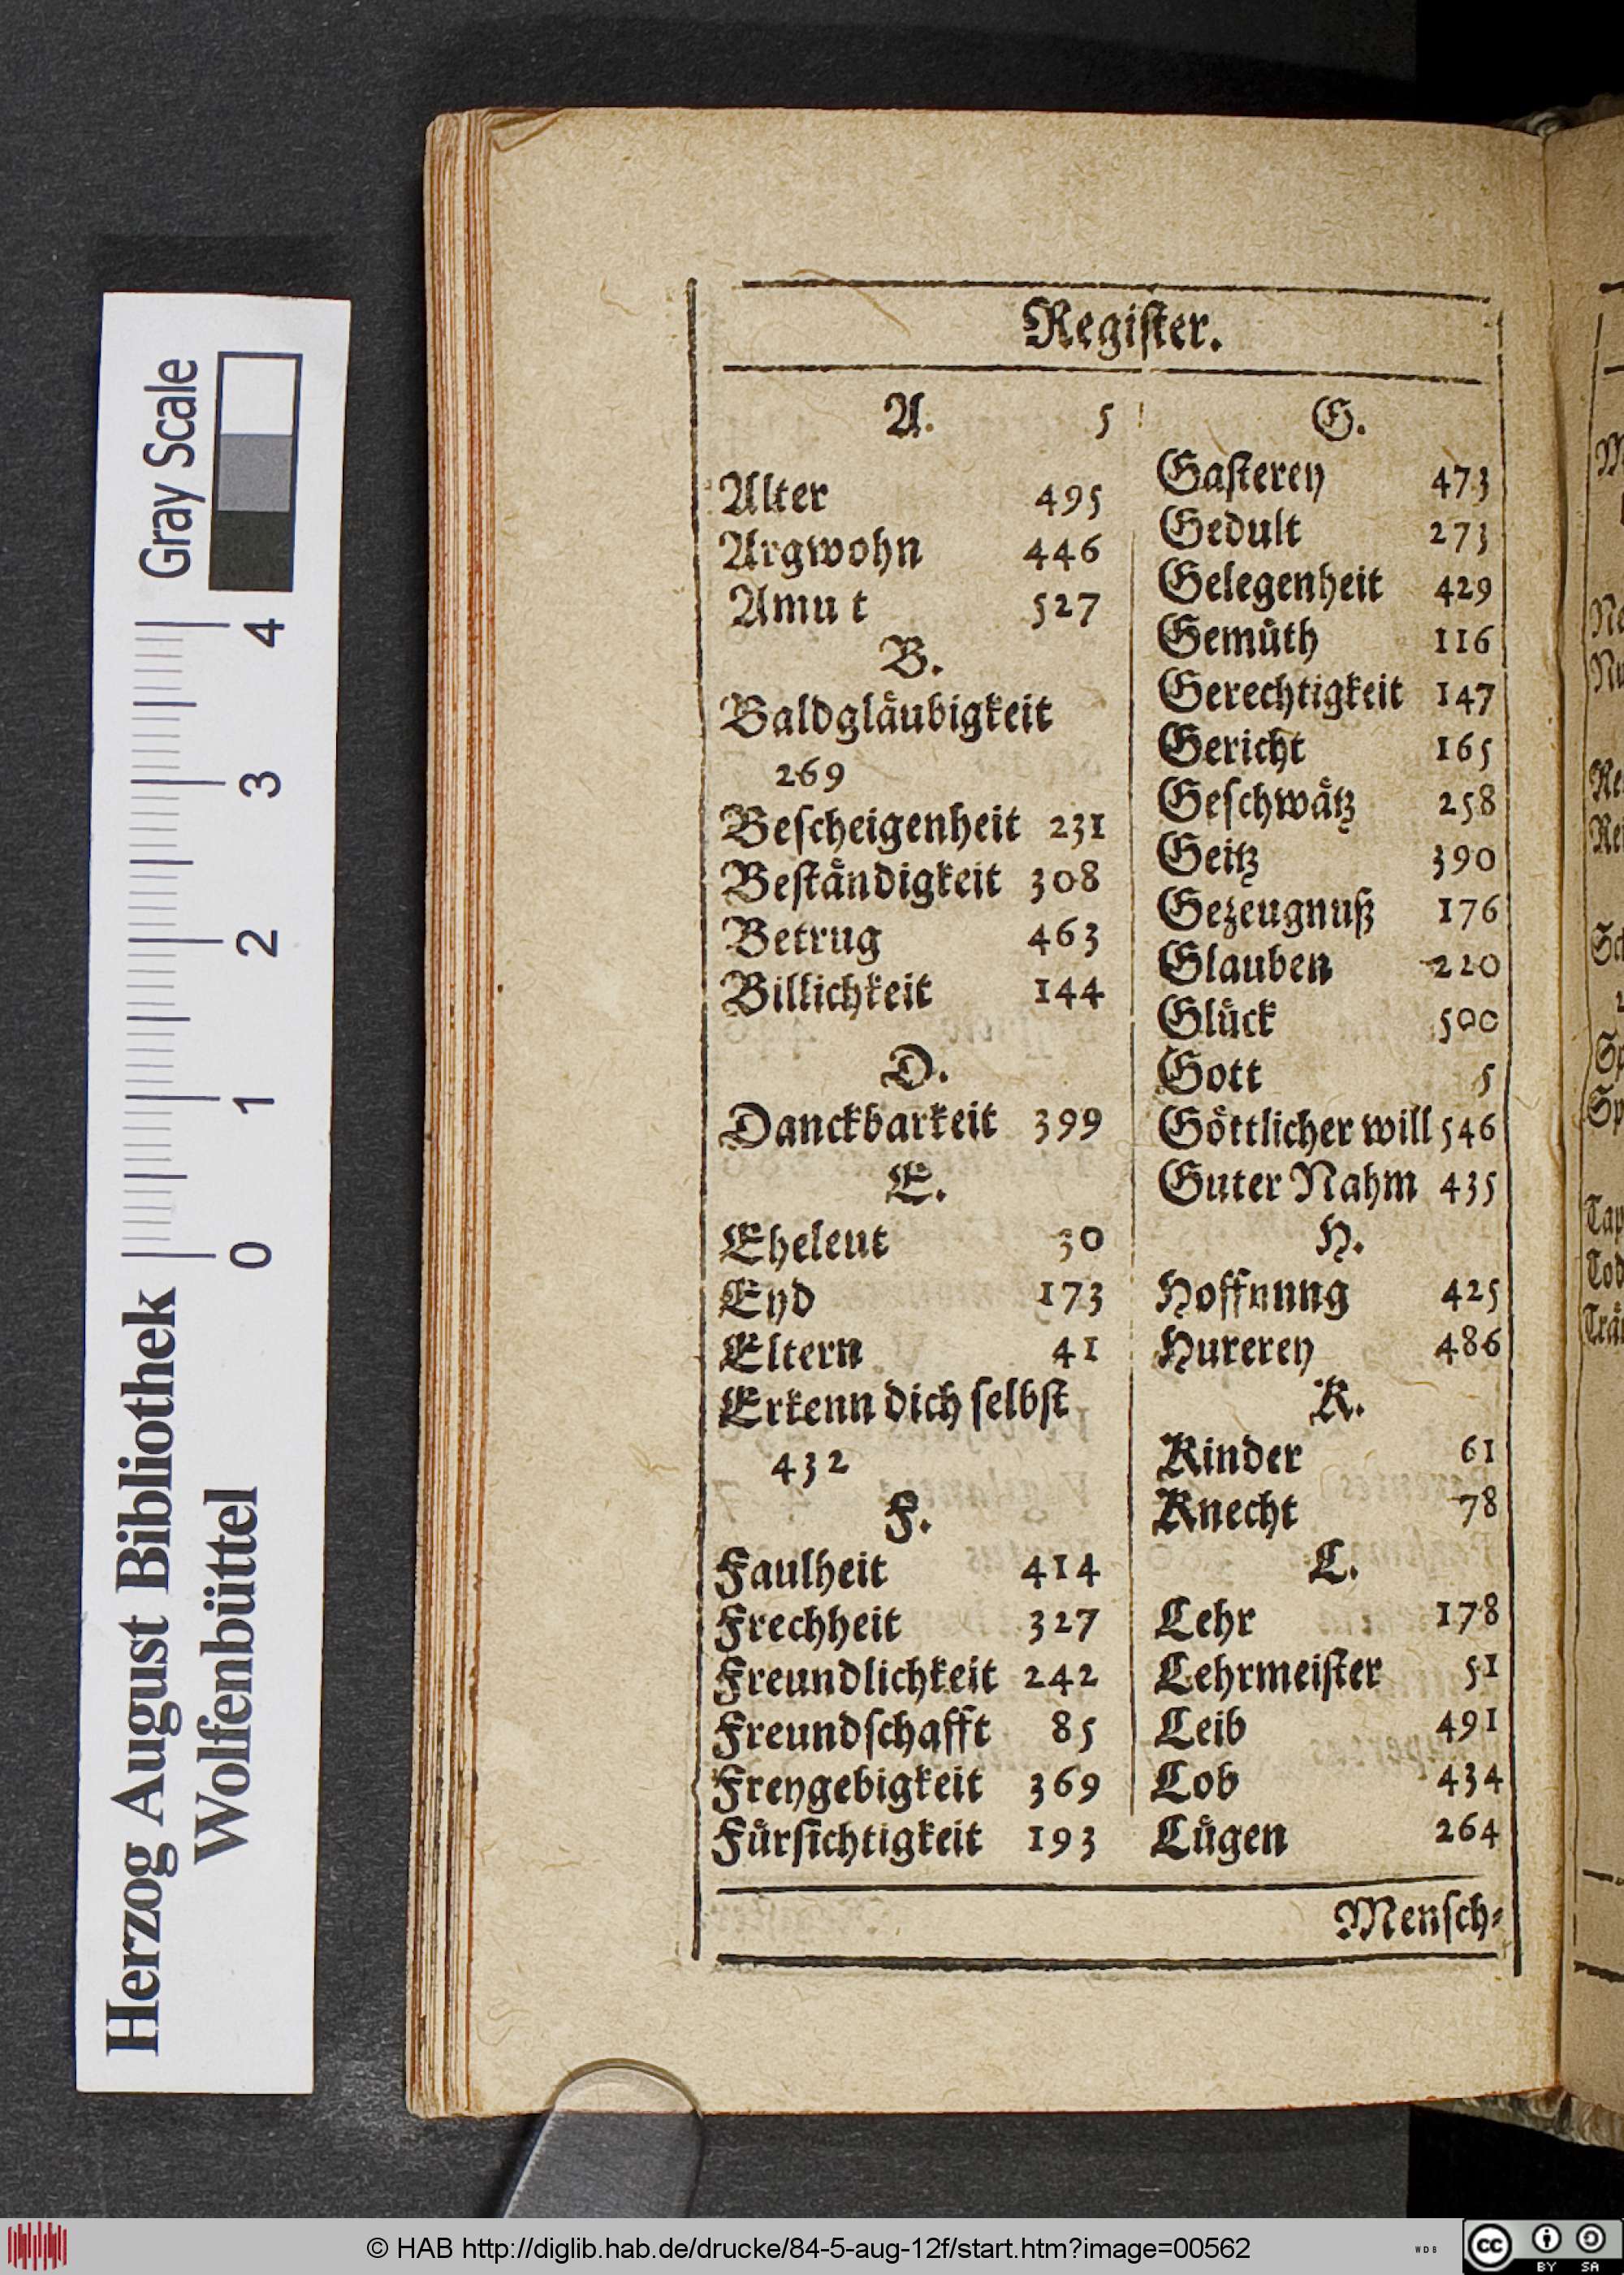 Regiſter.
A. 5
Alter 495
Argwohn 446
Amu t 527
B.
Baldglaͤubigkeit
269
Beſcheigenheit 231
Beſtaͤndigkeit 308
Betrug 463
Billichkeit 144
D.
Danckbarkeit 399
E.
Eheleut 30
Eyd 173
Eltern 41
Erkenn dich ſelbſt
432
F.
Faulheit 414
Frechheit 327
Freundlichkeit 242
Freundſchafft 85
Freygebigkeit 369
Fuͤrſichtigkeit 193
G.
Gaſterey 473
Gedult 273
Gelegenheit 429
Gemuͤth 116
Gerechtigkeit 147
Gericht 165
Geſchwaͤtz 258
Geitz 390
Gezeugnuß 176
Glauben 220
Gluͤck 500
Gott 5
Goͤttlicher will 546
Guter Nahm 435
H.
Hoffnung 425
Hurerey 486
K.
Kinder 61
Knecht 78
L.
Lehr 178
Lehrmeiſter 51
Leib 491
Lob 434
Luͤgen 264
Menſch⸗
Gray Scale
4
3
2
1
0
Herzog August Bibliothek
Wolfenbüttel
© HAB http://diglib.hab.de/drucke/84-5-aug-12f/start.htm?image=00562
WDB
cc
BY SA